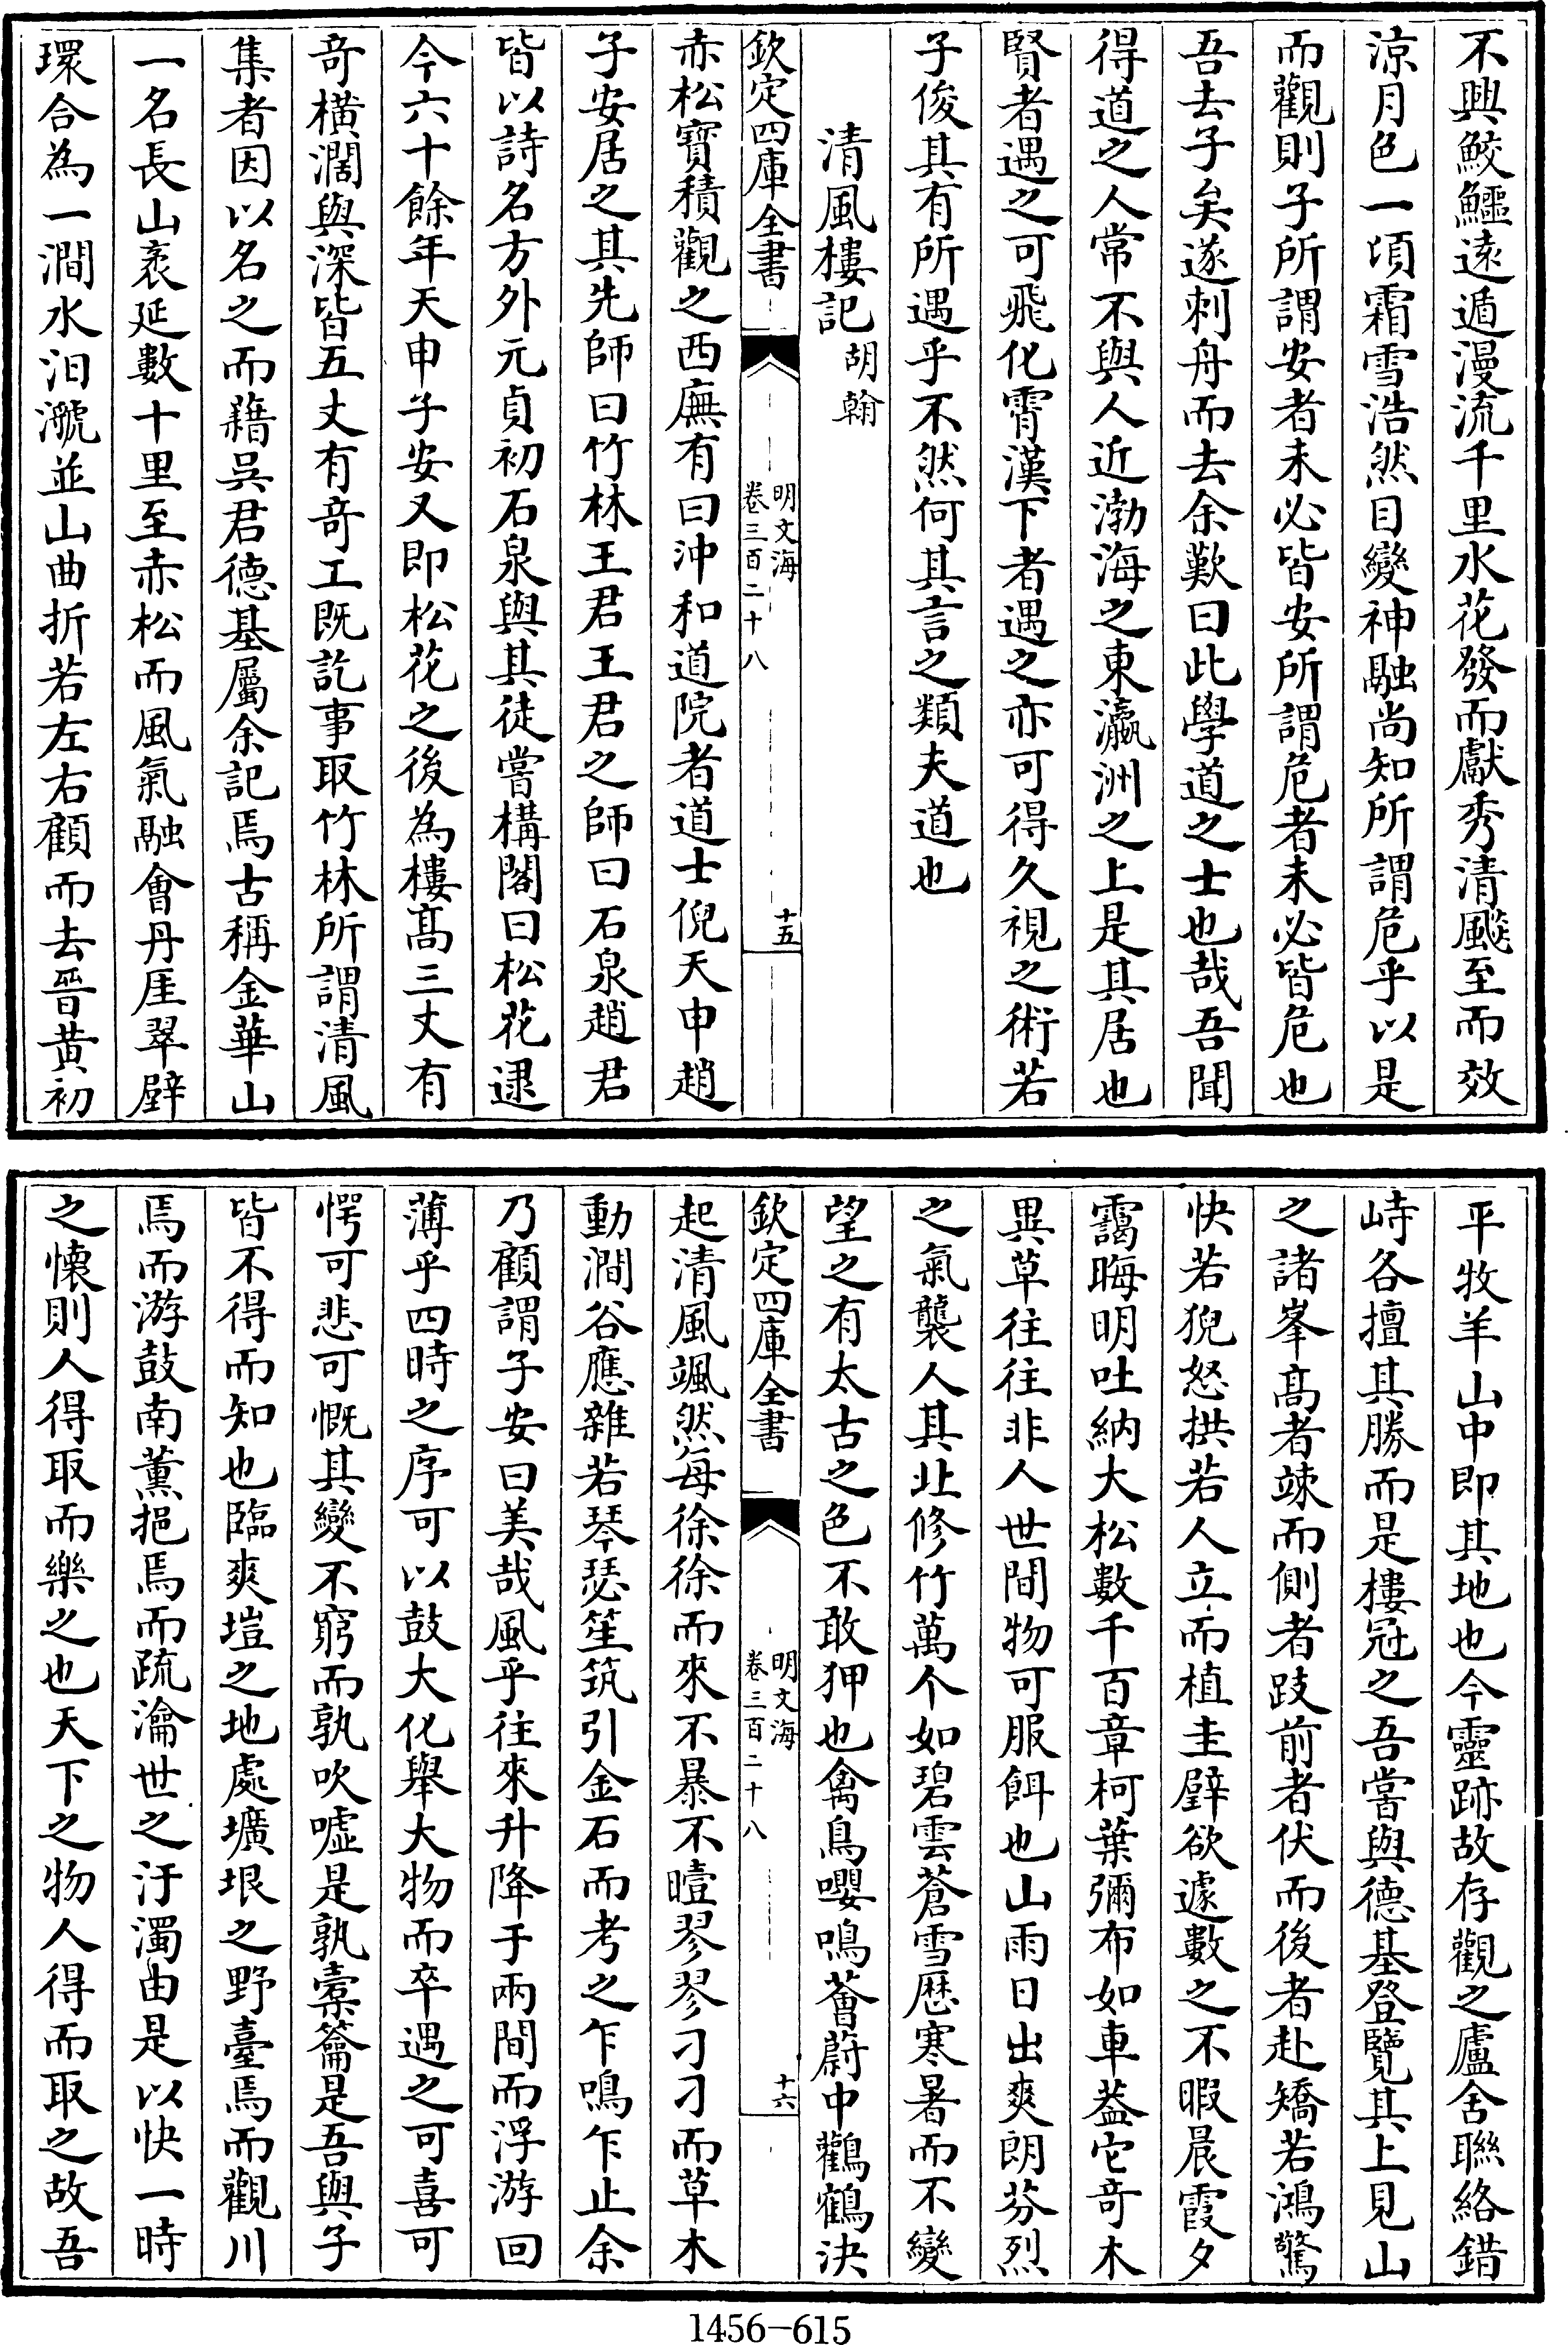 不興鮫鱷遠遁漫流千里水花發而獻秀清飈至而效
涼月色一頃霜雪浩然目變神融尚知所謂危乎以是
而觀則子所謂安者未必皆安所謂危者未必皆危也
吾去子矣遂刺舟而去余歎曰此學道之士也哉吾聞
得道之人常不與人近渤海之東瀛洲之上是其居也
賢者遇之可飛化霄漢下者遇之亦可得久視之術若
子俊其有所遇乎不然何其言之類夫道也
清風樓記 胡翰
欽定四庫全書 明文海 卷三百二十八 十五
赤松寶積觀之西廡有曰沖和道院者道士倪天申趙
子安居之其先師曰竹林王君王君之師曰石泉趙君
皆以詩名方外元貞初石泉與其徒嘗構閣曰松花逮
今六十餘年天申子安又即松花之後為樓髙三丈有
竒橫濶與深皆五丈有竒工既訖事取竹林所謂清風
集者因以名之而藉吳君德基屬余記焉古稱金華山
一名長山袤延數十里至赤松而風氣融會丹厓翠壁
環合為一澗水汨㶁並山曲折若左右顧而去晉黄初
平牧羊山中即其地也今靈跡故存觀之廬舍聯絡錯
峙各擅其勝而是樓冠之吾嘗與德基登覽其上見山
之諸峯髙者竦而側者跂前者伏而後者赴矯若鴻驚
快若猊怒拱若人立而植圭璧欲遽數之不暇晨霞夕
靄晦明吐納大松數千百章柯葉彌布如車葢它竒木
異草往往非人世間物可服餌也山雨日出爽朗芬烈
之氣襲人其北修竹萬个如碧雲蒼雪厯寒暑而不變
望之有太古之色不敢狎也禽鳥嚶鳴薈蔚中鸛鶴決
欽定四庫全書 明文海 卷三百二十八 十六
起清風颯然每徐徐而來不暴不曀翏翏刁刁而草木
動澗谷應雜若琴瑟笙筑引金石而考之乍鳴乍止余
乃顧謂子安曰美哉風乎往來升降于兩間而浮游回
薄乎四時之序可以鼓大化舉大物而卒遇之可喜可
愕可悲可慨其變不窮而孰吹噓是孰橐籥是吾與子
皆不得而知也臨爽塏之地處壙垠之野臺焉而觀川
焉而游鼓南薰挹焉而疏瀹世之汙濁由是以快一時
之懷則人得取而樂之也天下之物人得而取之故吾
1456-615